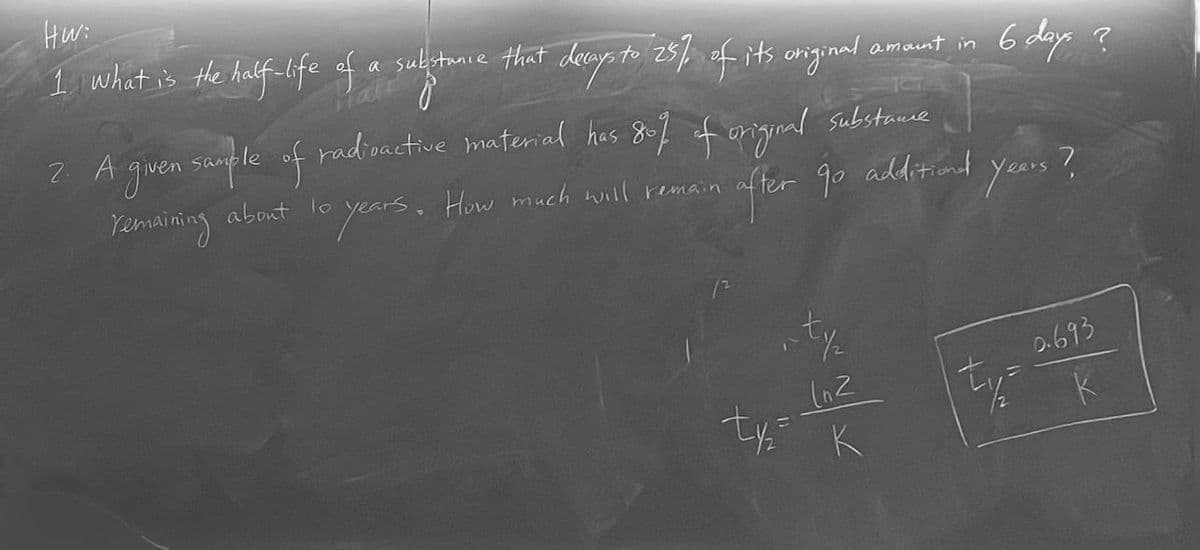 HW:
1. what is the half-life of a substanie that decays to 25% of its original amount in 6 days ?
2. A given sample of radioactive material has 80% of original substance
remaining about 10 years. How much will remain after 90 additional years ?
/2
t1/2
t1/2 = ln2 / K
t1/2 = 0.693 / K